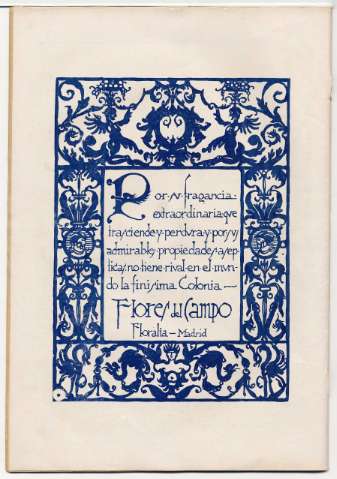 Por su fragancia
extraordinaria que
trasciende y perdura y por sus
admirables propiedades asép
ticas no tiene rival en el mun
do la finísima Colonia —
Flores del Campo
Floralia — Madrid